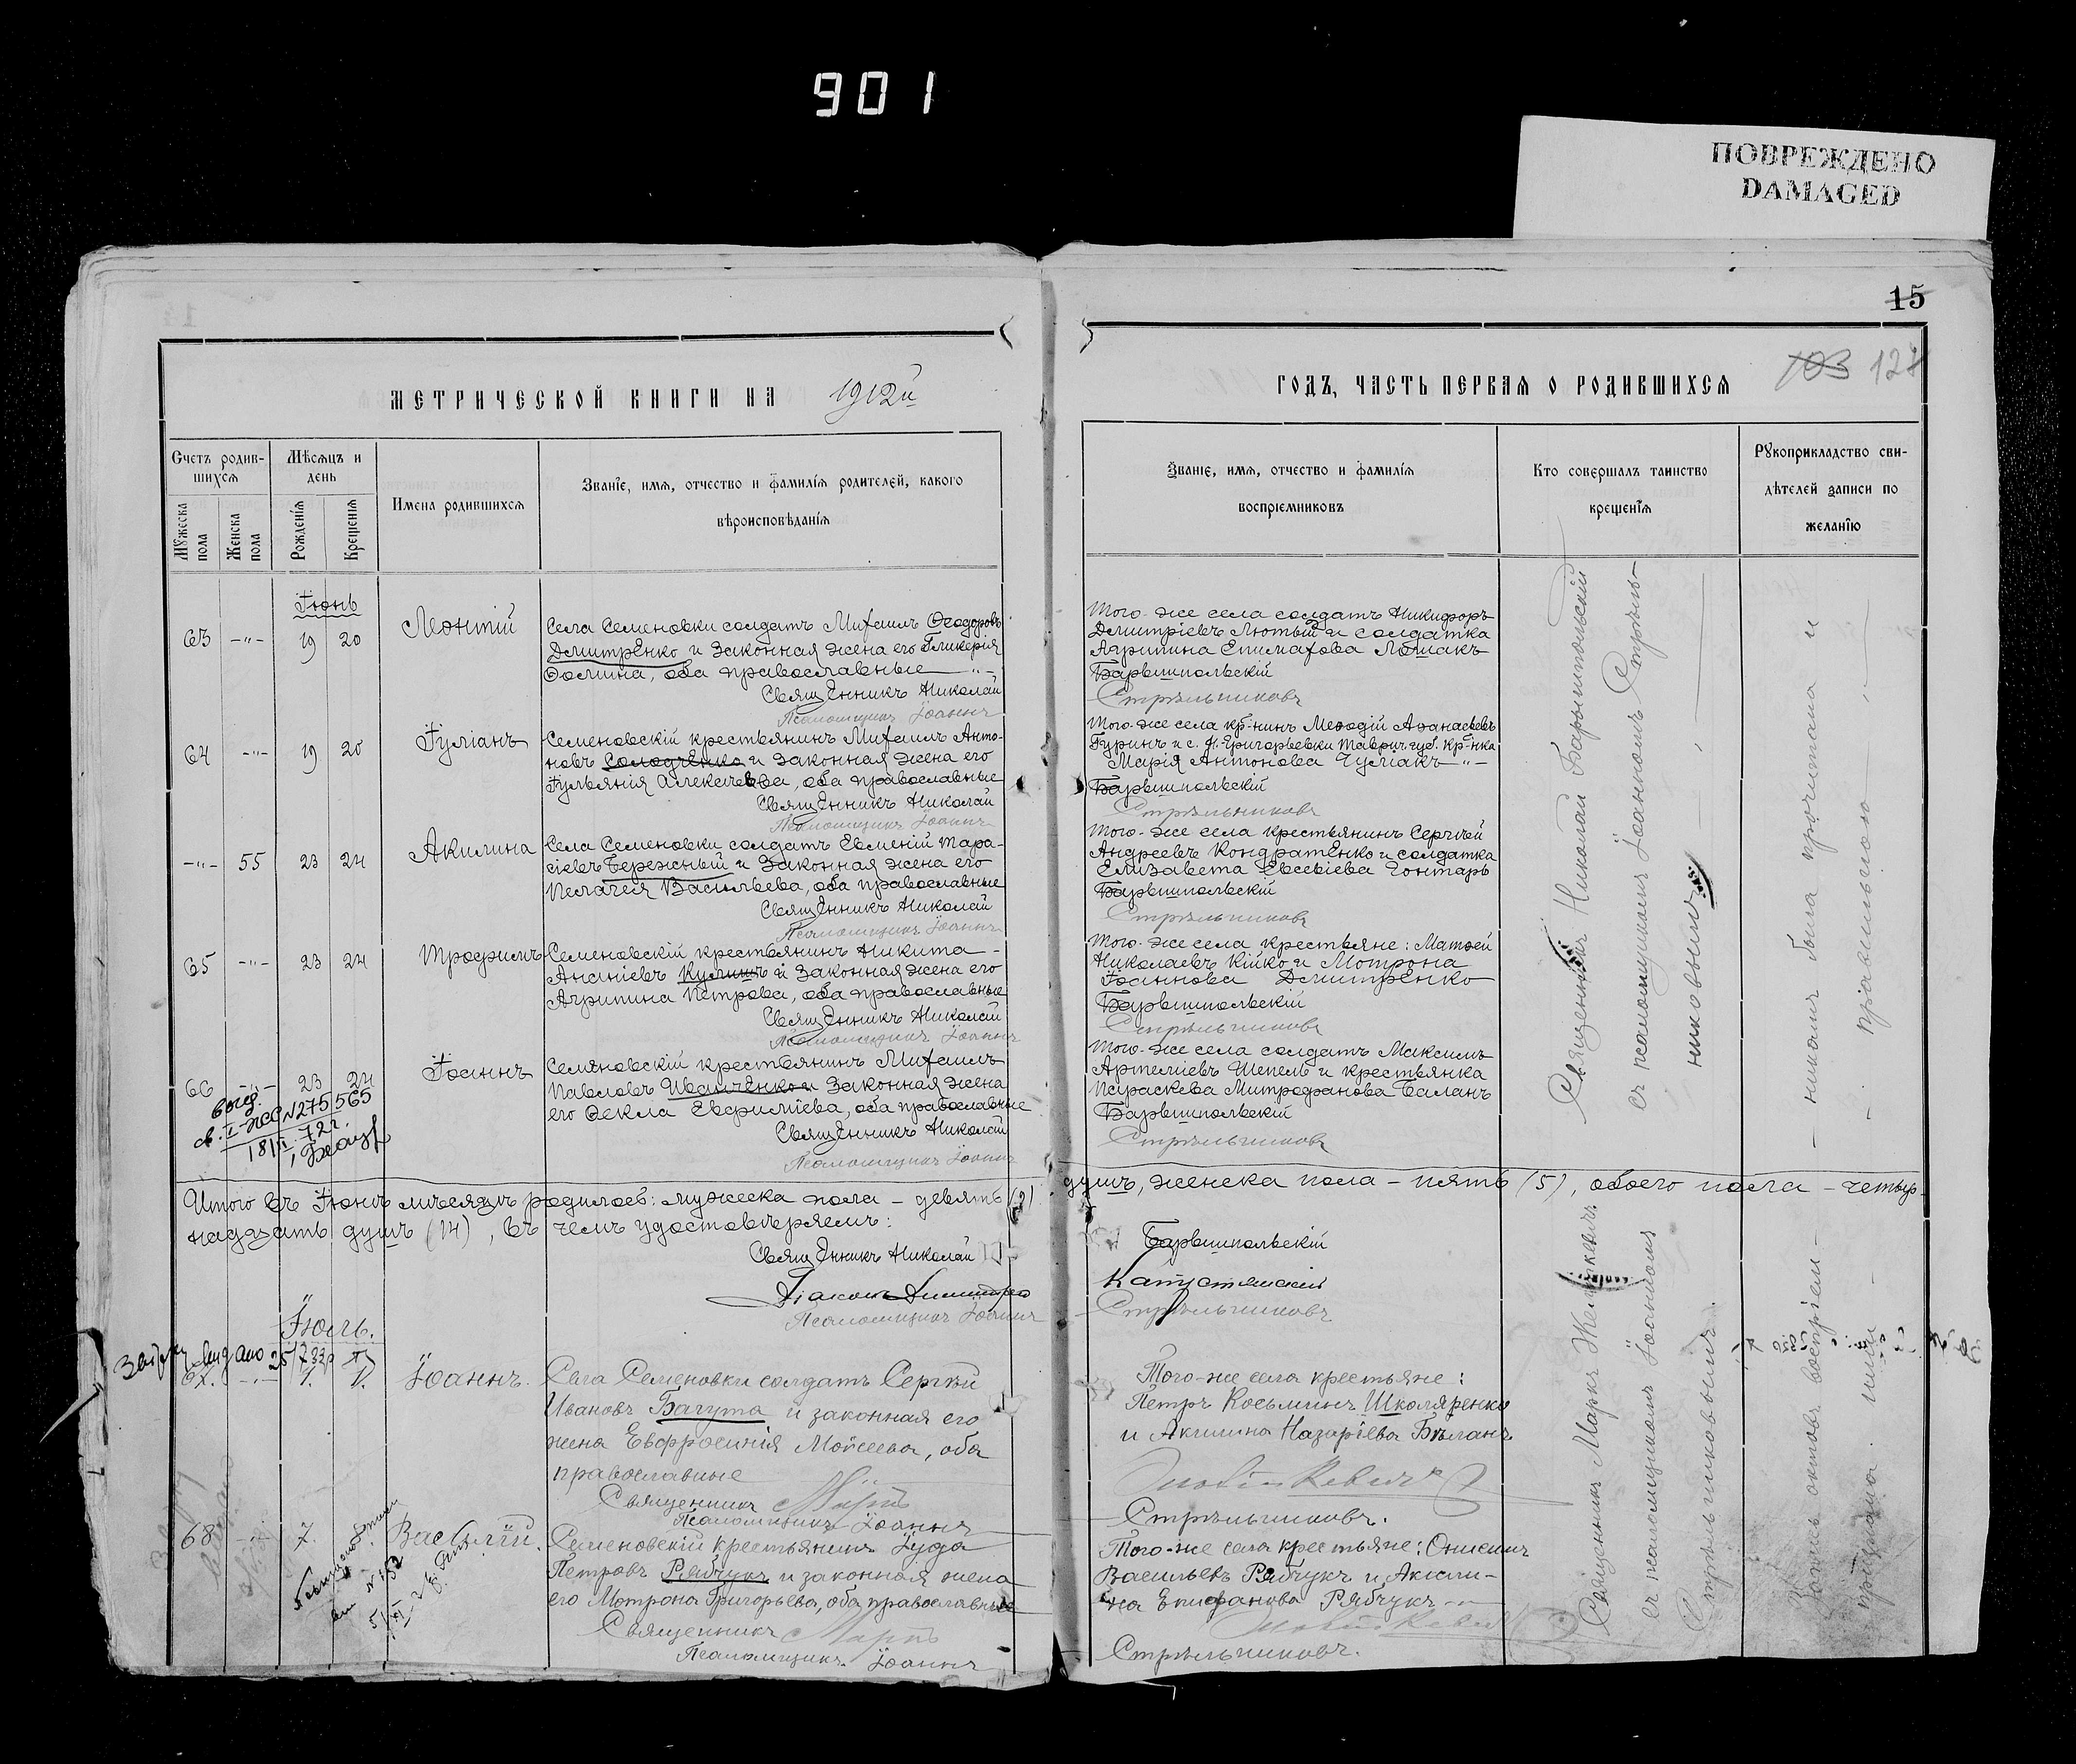 901
ПОВРЕЖДЕНО
DAMAGED
15
103 127
МЕТРИЧЕСКОЙ КНИГИ НА 1912й
ГОДЪ, ЧАСТЬ ПЕРВАЯ О РОДИВШИХСЯ
Счетъ родив-
шихся
Мѣсяцъ и
день
Мужеска пола
Женска пола
Рожденія
Крещенія
Имена родившихся
Званіе, имя, отчество и фамилія родителей, какого
вѣроисповѣданія
Званіе, имя, отчество и фамилія
воспріемниковъ
Кто совершалъ таинство
крещенія
Рукоприкладство сви-
дѣтелей записи по
желанію
Іюнь
63 -"- 19 20 Леонтій
Села Семеновки солдатъ Михаилъ Ѳеодоровъ
Дмитренко и законная жена его Гликерія
Ѳомина, оба православные -"-
Священникъ Николай
Псаломщикъ Іоаннъ
Того-же села солдатъ Никифоръ
Димитріевъ Лютый и солдатка
Агрипина Епимахова Лошакъ
Барвшпольскій
Стрѣльниковъ
64 -"- 19 20 Іуліанъ
Семеновскій крестьянинъ Михаилъ Анто-
новъ Солодченко и законная жена его
Іульянія Алексѣева, оба православные
Священникъ Николай
Псаломщикъ Іоаннъ
Того-же села кр-нинъ Меѳодій Аѳанасіевъ
Гуринъ и с. Н.-Григорьевки Таврич. губ. кр-нка
Марія Антонова Чумакъ -"-
Барвшпольскій
Стрѣльниковъ
-"- 55 23 24 Акилина
Села Семеновки солдатъ Евменій Тара-
сіевъ Бережный и законная жена его
Пелагея Васильева, оба православные
Священникъ Николай
Псаломщикъ Іоаннъ
Того-же села крестьянинъ Сергѣй
Андреевъ Кондратенко и солдатка
Елизавета Евсевіева Гонтарь
Барвшпольскій
Стрѣльниковъ
65 -"- 23 24 Трофимъ
Семеновскій крестьянинъ Никита
Ананіевъ Кулишъ и законная жена его
Агрипина Петрова, оба православные
Священникъ Николай
Псаломщикъ Іоаннъ
Того-же села крестьяне: Матѳей
Николаевъ Кійко и Мотрона
Іоаннова Дмитренко
Барвшпольскій
Стрѣльниковъ
66 -"- 23 24 Іоаннъ
Семеновскій крестьянинъ Михаилъ
Павловъ Иванченко и законная жена
его Ѳекла Евфиміева, оба православные
Священникъ Николай
Псаломщикъ Іоаннъ
Того-же села солдатъ Максимъ
Артеміевъ Шепель и крестьянка
Параскева Митрофанова Баланъ
Барвшпольскій
Стрѣльниковъ
св. I-ЖС №275565
Священникъ Николай
съ псаломщикомъ Іоанномъ Стрѣль-
никовымъ
никомъ была прочитана и
правильною
Итого въ Іюнѣ мѣсяцѣ родилось: мужеска пола - девять (9)
душъ, женска пола - пять (5), обоего пола - четыр-
надцать душъ (14), въ чемъ удостовѣряемъ:
Священникъ Николай
Барвшпольскій
Діаконъ Димитрій
Капустянскій
Псаломщикъ Іоаннъ
Стрѣльниковъ
Іюль.
67. -"- 1. 1. Іоаннъ.
Села Семеновки солдатъ Сергѣй
Ивановъ Багута и законная его
жена Евфросинія Моисеева, оба
православные
Священникъ Маркъ
Псаломщикъ Іоаннъ
Того-же села крестьяне:
Петръ Косьминъ Школяренко
и Акилина Назаріева Бѣланъ
Стрѣльниковъ.
68 -"- 7. Василій.
Семеновскій крестьянинъ Іуда
Петровъ Рябчукъ и законная жена
его Мотрона Григорьева, оба православные
Священникъ Маркъ
Псаломщикъ Іоаннъ
Того-же села крестьяне: Онисимъ
Васильевъ Рябчукъ и Акили-
на Епифанова Рябчукъ -"-
Стрѣльниковъ.
Священникъ Маркъ
съ псаломщикомъ Іоанномъ
Стрѣльниковымъ.